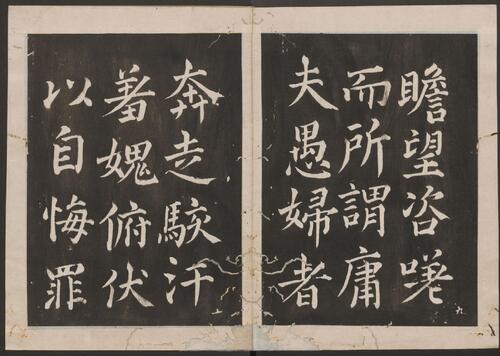 瞻望咨嗟
而所謂庸
夫愚婦者
奔走駭汗
羞媿俯伏
以自悔罪
九